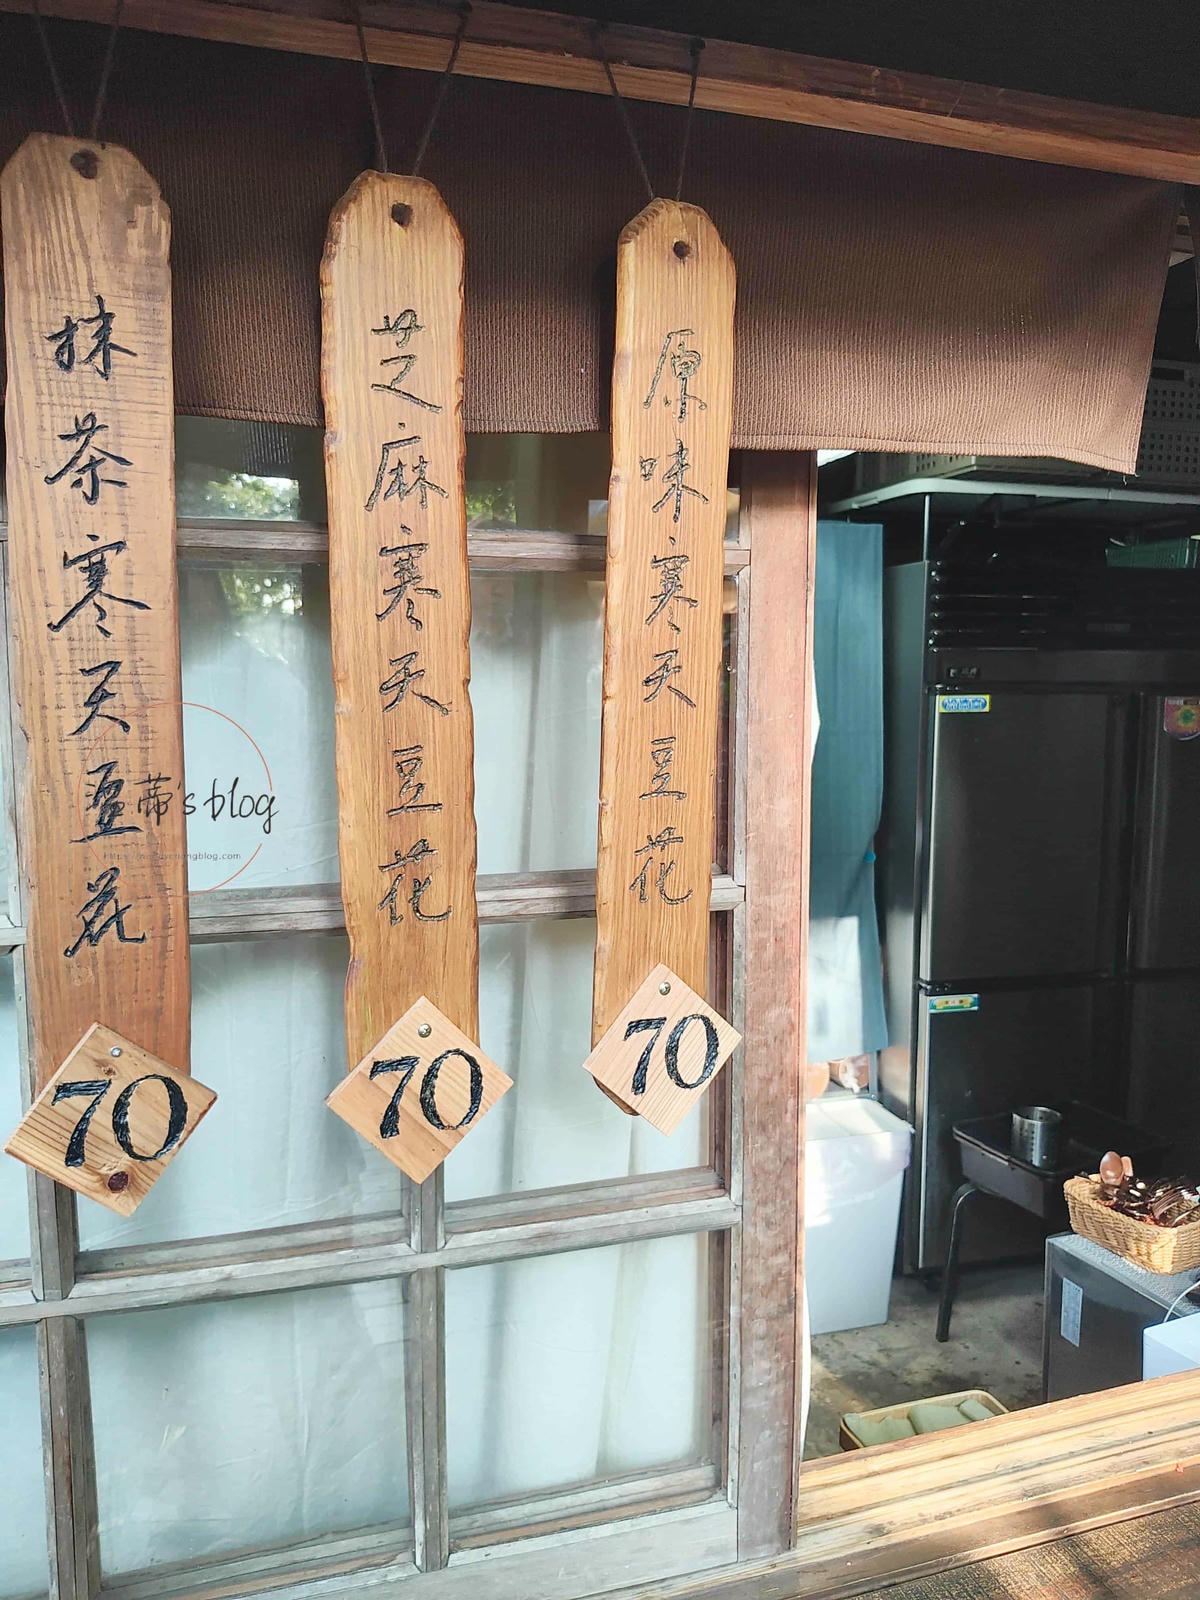 抹茶寒天豆花
70
芝麻寒天豆花
70
原味寒天豆花
70
蒂's blog